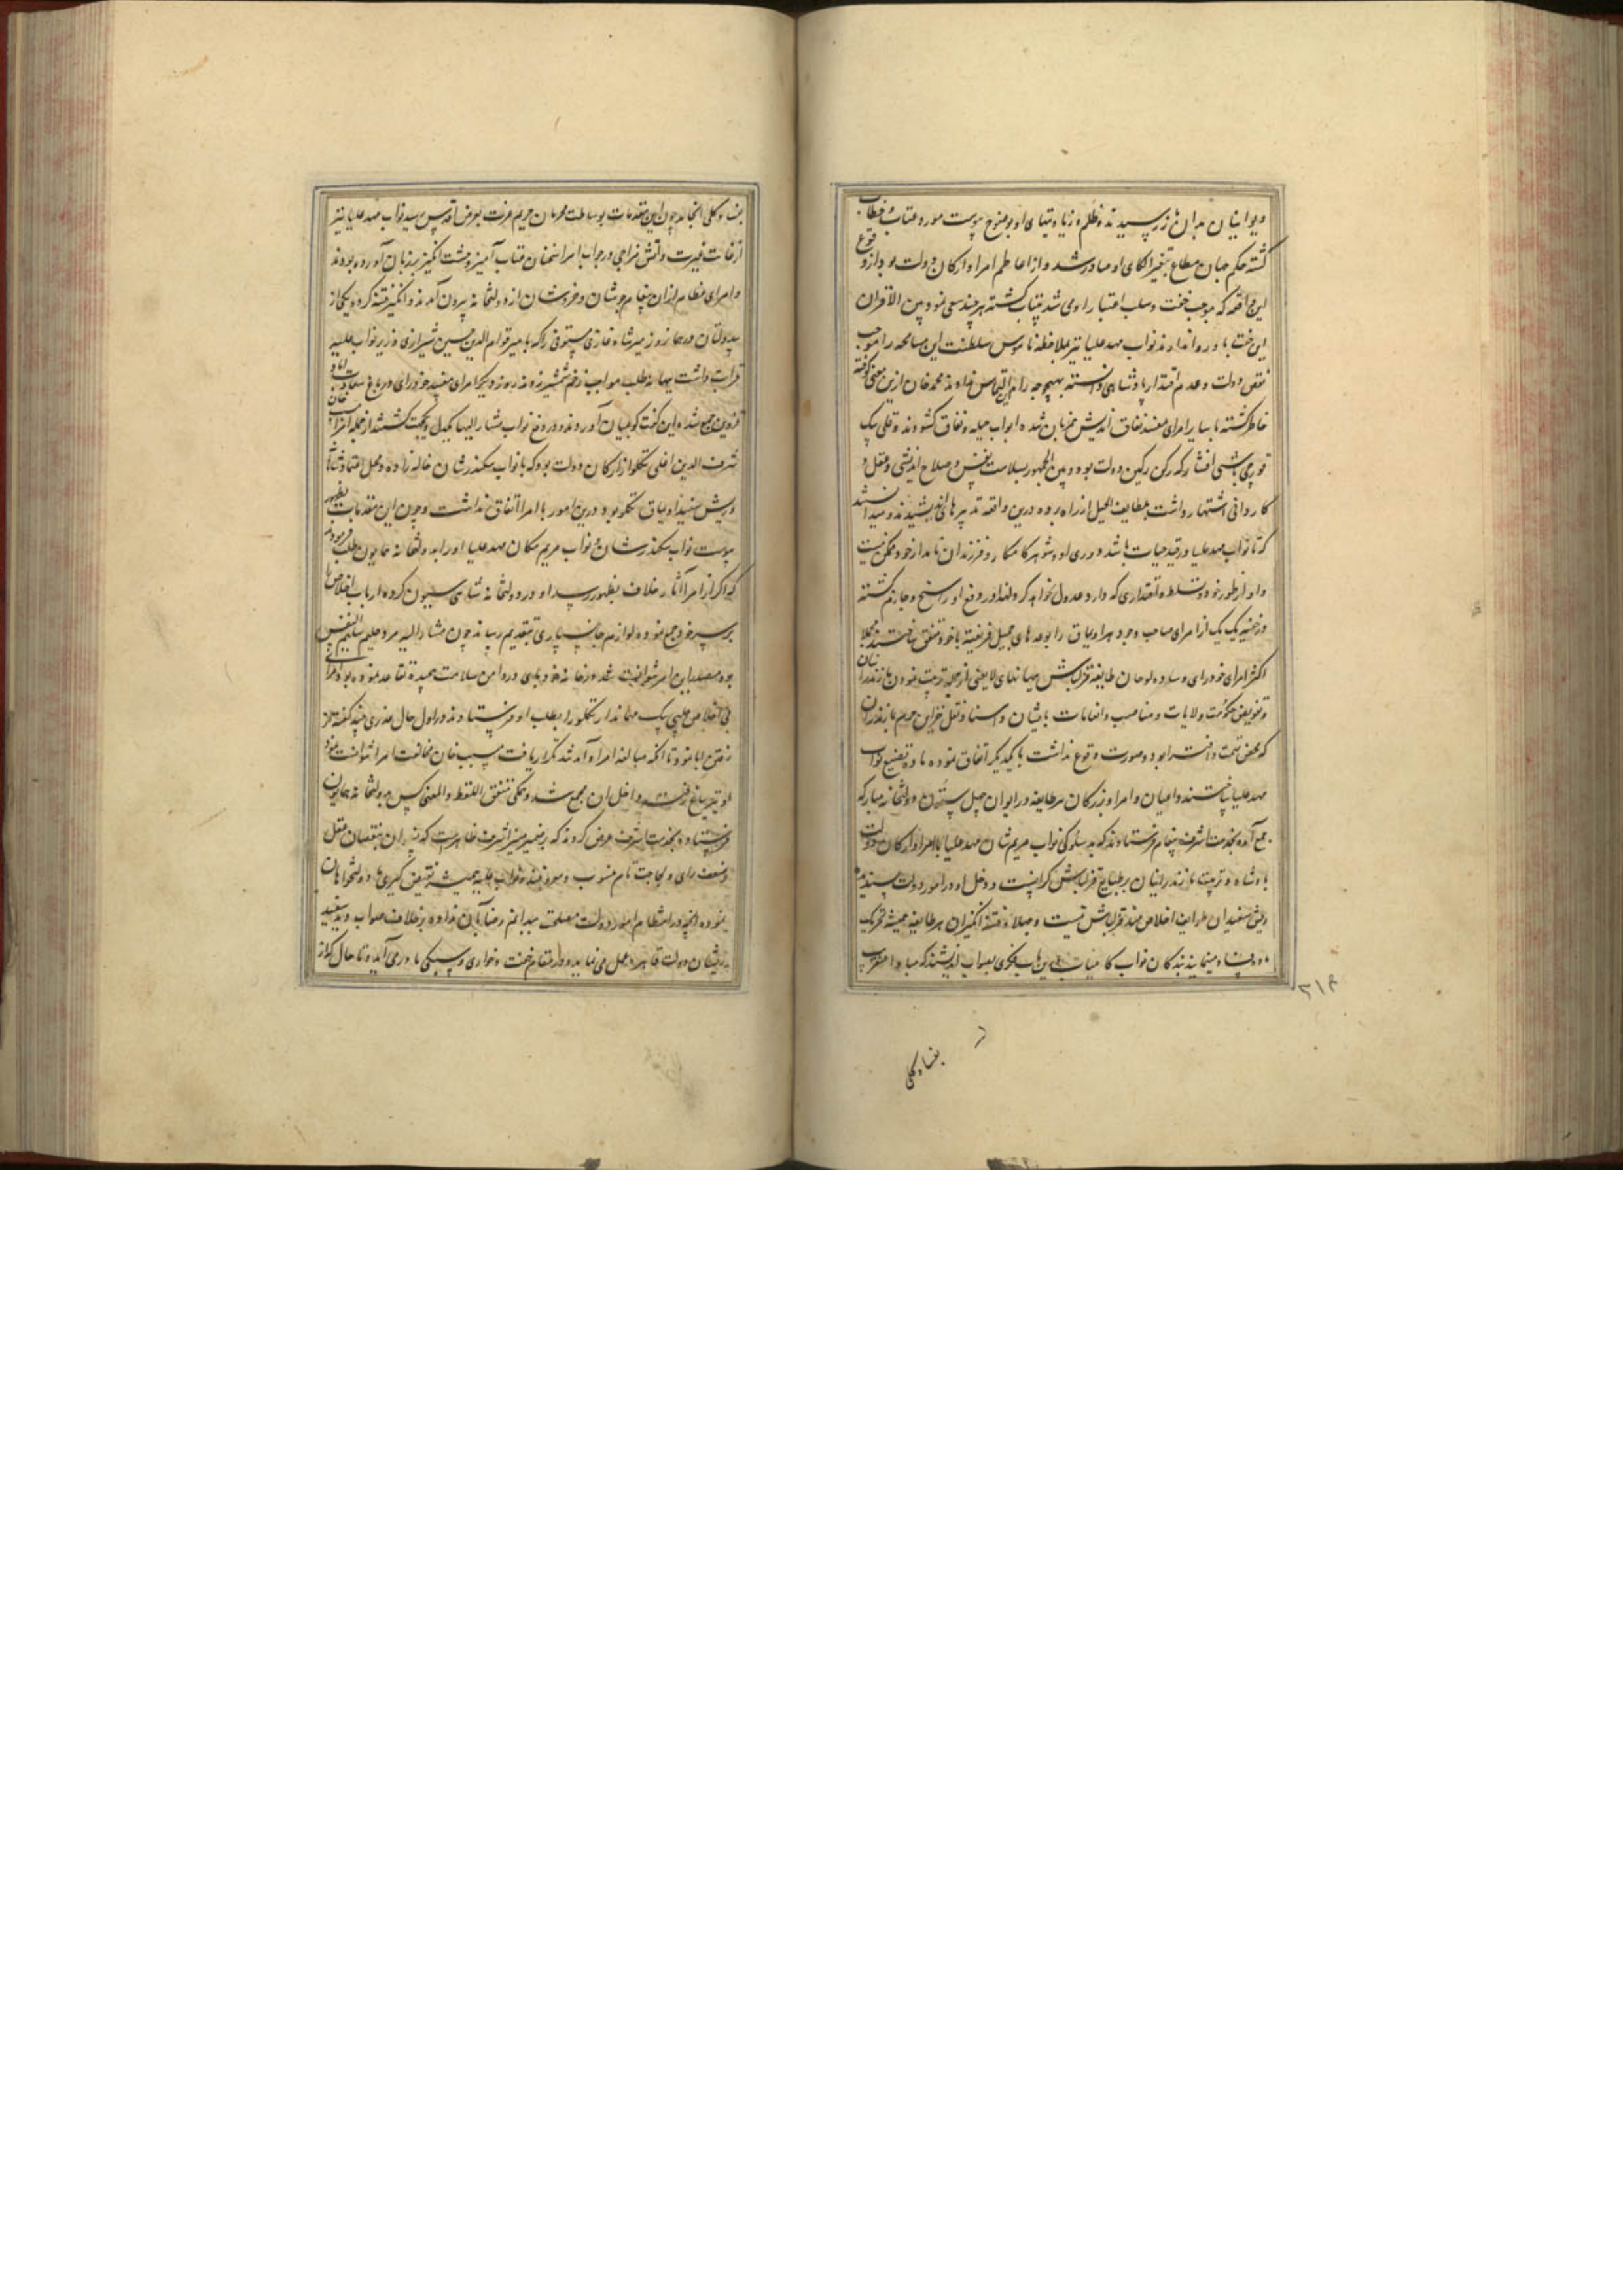 دیوانیان بدان باز رسیدند و ظلم و زیادتیهای او بوضوح پیوست مورد عتاب و خطاب
گشته حکم جهان مطاع بتغییر الکای او صادر شد و از اعاظم امرا و ارکان دولت بود ازو قوع
این واقعه که موجب خفت و سلب اعتبار او می شد بیتاب گشته هر چند سعی نمود بین الاقران
این خفت باو روا ندارند نواب مهد علیا نیز ملاحظه ناموس سلطنت این مسامحه را موجب
نقص دولت و عدم اقتدار پادشاهی دانسته بهیچوجه راه این التماس نداوند محمد خان ازین معنی کوفته
خاطر گشته با سایر امرای مفسد نفاق اندیش همزبان شده ابواب حیله و نفاق گشودند و قلی بیک
قورچی باشی افشار که رکن رکین دولت بود و بین الجمهور بسلامت نفس و صلاح اندیشی و عقل و
کاردانی اشتهار داشت بلطایف الحیل از راه برده درین واقعه تدبیرهای اندیشیدند و میدانستند
که تا نواب مهد علیا در قید حیات باشد دوری او و شوهر کامکار و فرزندان نامدار خود ممکن نیست
و او از طور خود و تسلط و اقتداری که دارد عدول نخواهد کرد لهذا در دفع او راسخ و جازم گشته
در خفیه یک یک از امرای صاحب وجود هر اویماق را بوعدهای جمیل فریفته با خود متفق ساختند مجملا
اکثر امرای خودرای و ساده لوحان طایفه قزلباش ببهانهای لایعنی از جمله تربیت نمودن مازندرانیان
و تفویض حکومت ولایات و مناصب و انعامات بایشان و اسناد نقل خزاین حریم بمازندران
که محض تهمت و افترا بود و صورت وقوع نداشت با یکدیگر اتفاق نموده ماده تضییع نواب
مهد علیا ساختند و اعیان و امرا و بزرگان هر طایفه در ایوان چهل ستون دولتخانه مبارکه
جمع آمده بخدمت اشرف پیغام فرستادند که بدسلوکی نواب مریم شان مهد علیا با امرا و ارکان دولت
پادشاه و تربیت مازندرانیان بر طبایع قزلباش گرانست و دخل او در امور دولت پسندیده
ریش سفیدان طوایف اخلاصمند قزلباش نیست و جهلا و فتنه انگیزان هر طایفه همیشه تحریک
ماده فساد مینمایند بندگان نواب کامیاب درین باب فکری بصواب اندیشند که مبادا عنقریب
۲۱۴
بفساد کلی
بفساد کلی انجامد چون این مقدمات بوساطت محرمان حریم عزت بعرض اقدس رسید نواب مهد علیا نیز
از غایت غیرت و آتش مزاجی در جواب امرا سخنان عتاب آمیز وحشت انگیز بر زبان آورده بودند
و امرای عظام ازان پیغام جوشان و خروشان از دولتخانه بیرون آمدند و انگیز فتنه کرده یکی از
بیدولتان در همان روز میر شاه غازی مستوفی را که با میر قوام الدین حسین شیرازی وزیر نواب علیه
قرابت داشت ببهانه طلب مواجب زخم شمشیر زدند روز دیگر امرای مفسد خودرای در باغ سعادت آباد
قزوین جمع شده این گفت و گو بمیان آوردند و در دفع نواب مشار الیها یکدل و یکجهت گشتند از جمله امرا خان
شرف الدین اغلی تکلو از ارکان دولت بود که با نواب سکندر شان خاله زاده و محل اعتماد شاهی
و ریش سفید اویماق تکلو بود درین امور با امرا اتفاق نداشت و چون این مقدمات بظهور
پیوست نواب سکندر شان و نواب مریم مکان مهد علیا او را بدولتخانه همایون طلب فرمودند
که اگر از امرا آثار خلاف بظهور رسد او در دولتخانه شاهی سیبون کرده ارباب اخلاص را
بر سر خود جمع نموده لوازم جان سپاری بتقدیم رساند چون مشار الیه مرد حلیم سلیم النفس
بود مصدر این امر نتوانست شد در خانه خود پای در دامن سلامت پیچیده تقاعد نموده بود امرای
بی اخلاص چلپی بیک مهماندار تکلو را بطلب او فرستادند در اول حال عذری چند گفته از
رفتن ابا نمود تا آنکه مبالغه امرا و آمد شد مکرر یافت مسیب خان مخالفت امرا نتوانست نمود
او نیز بباغ رفته داخل آن مجمع شد و همگی متفق اللفظ و المعنی کس بدولتخانه همایون
فرستاده بخدمت اشرف عرض کردند که بر ضمیر منیر اشرف ظاهرست که زنان بنقصان عقل
و ضعف رای و لجاجت تام منسوب و موصوفند و نواب علیه همیشه نقیض گیری ما دولتخواهان
نموده آنچه در انتظام امور دولت مصلحت میدانیم رضا بان نداده بر خلاف صواب دید ریش سفید
و ریشان دولت قاهره عمل می نماید و در مقام خفت و خواری و سبکی ما در می آید و تا حال که از